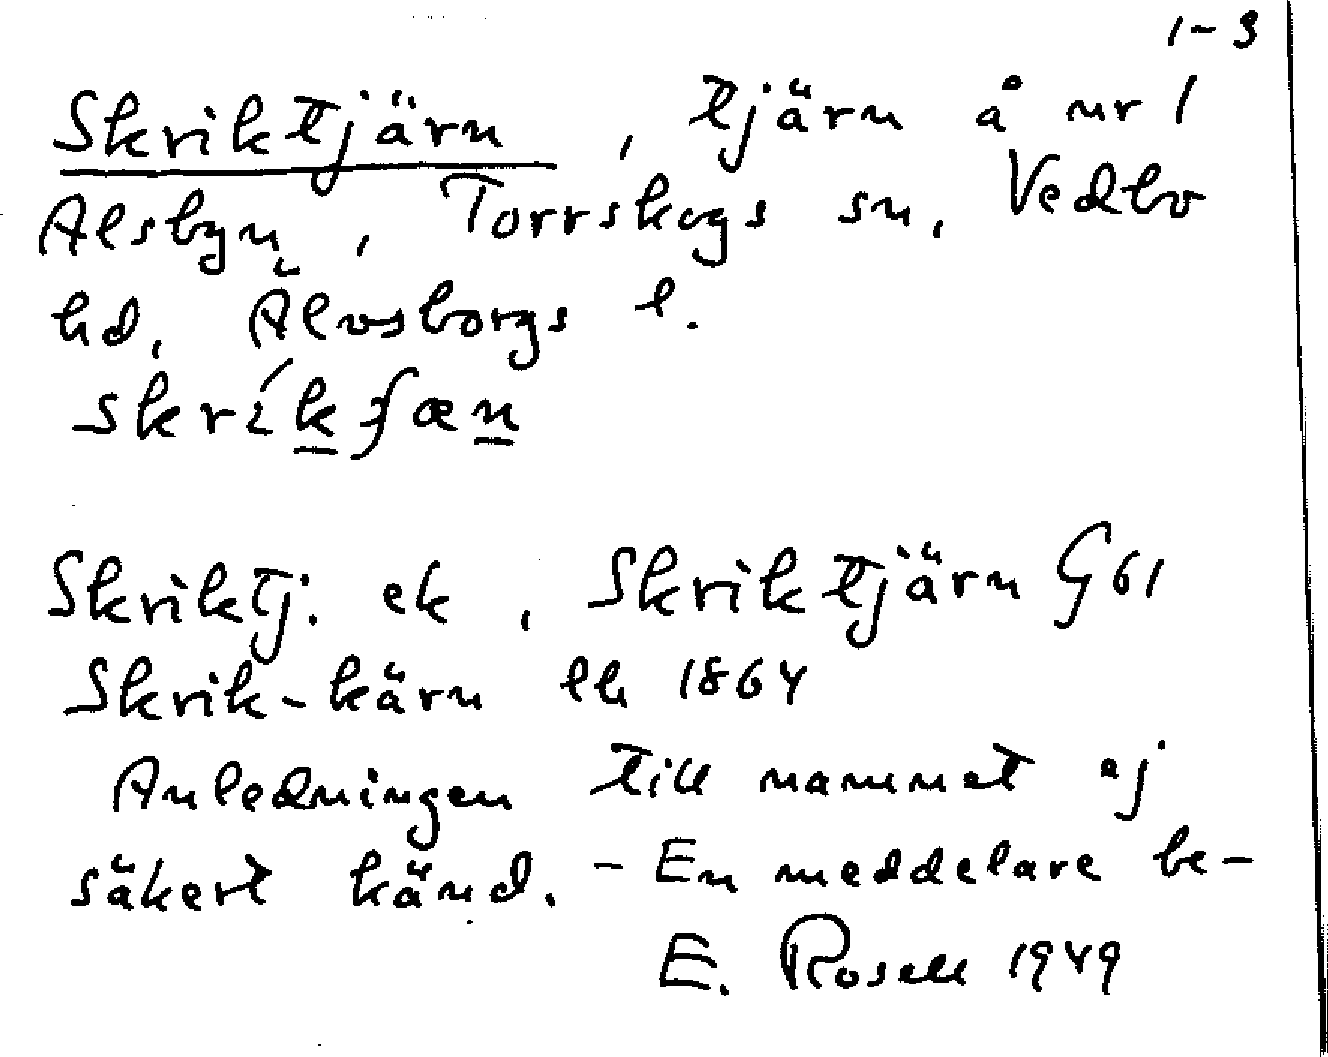 1-3
Skriktjärn, tjärn å nr 1
Alsbyn, Torrskogs sn, Vedbo
hd, Älvsborgs l.
skríkʃæn
Skriktj. ek, Skriktjärn G61
Skrik-kärn lh 1864
Anledningen till namnet ej
säkert känd. - En meddelare be-
E. Rosell 1949